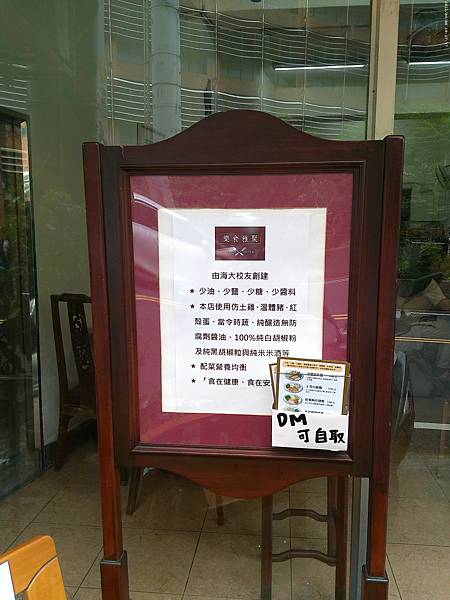 樂食雅聚
由海大校友創建
★ 少油、少鹽、少糖、少醬料
★ 本店使用仿土雞、溫體豬、紅
殼蛋、當令時蔬、純釀造無防
腐劑醬油、100%純白胡椒粉
及純黑胡椒粒與純米米酒等
★ 配菜營養均衡
★ 「食在健康、食在安
DM
可自取